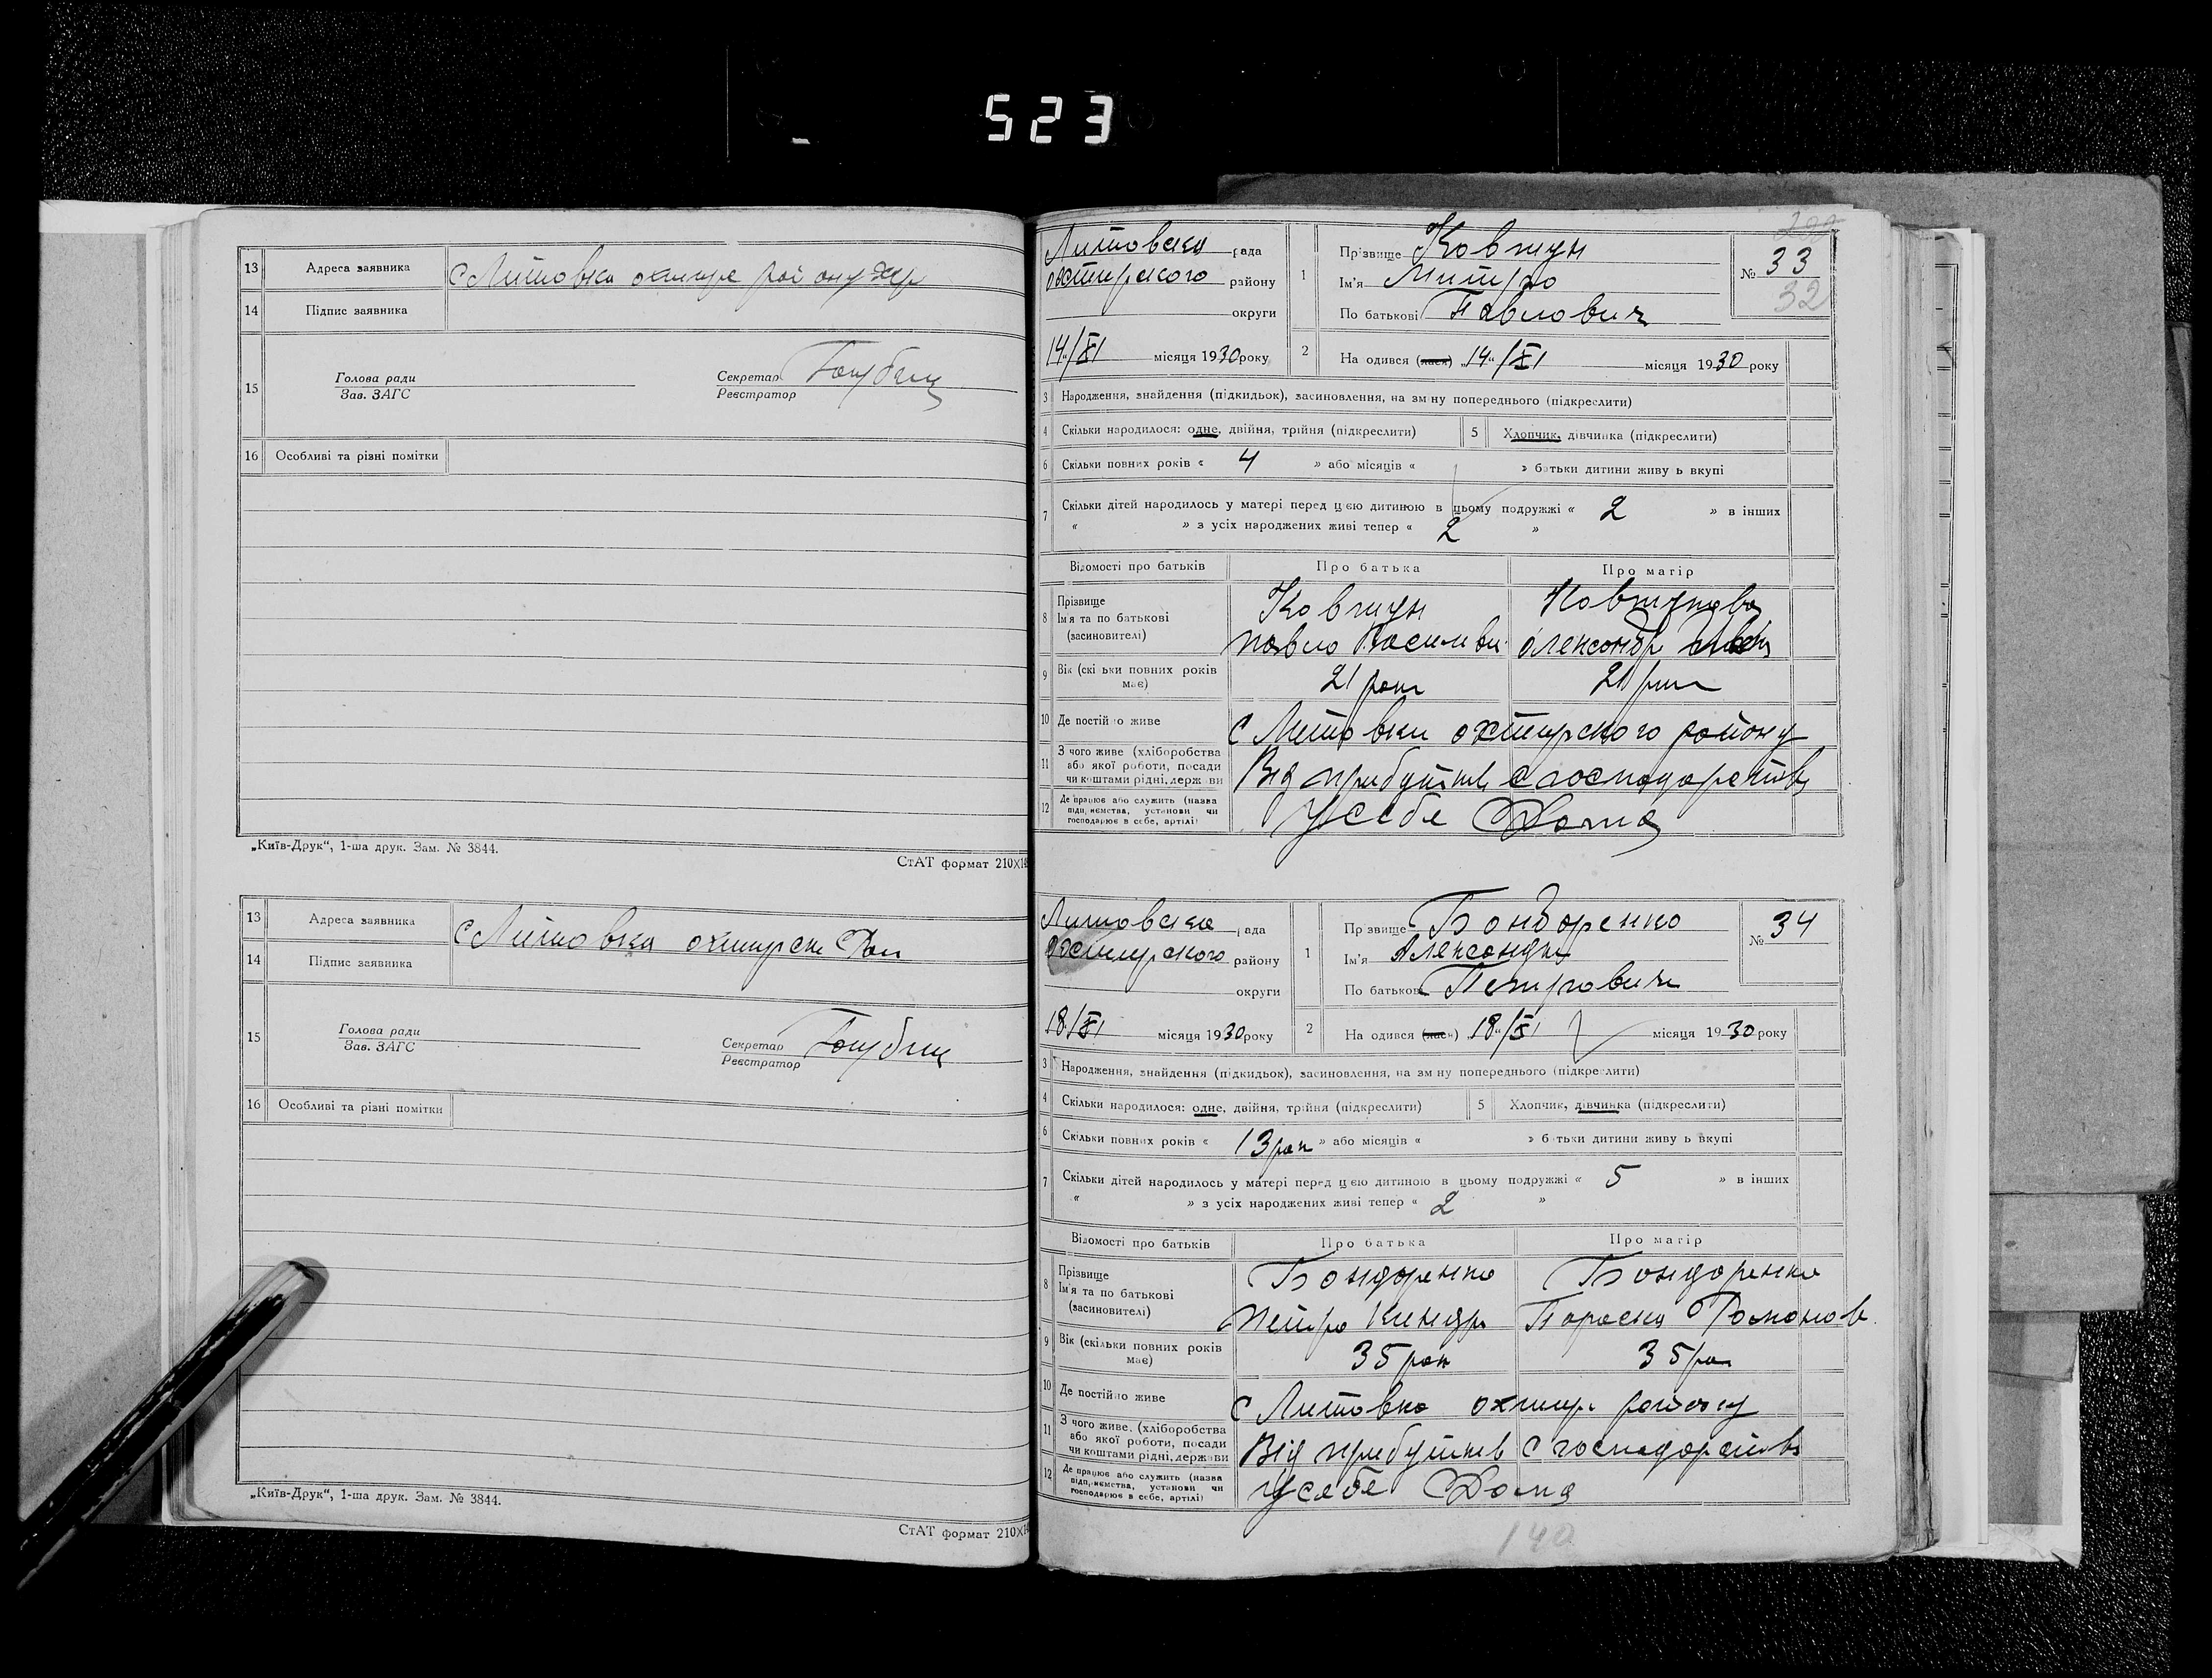 523
13 Адреса заявника С Литовка
14 Підпис заявника
15 Голова ради Секретар
Зав. ЗАГС Реєстратор
16 Особливі та різні помітки
„Київ-Друк“, 1-ша друк. Зам. № 3844.
СтАТ формат 210X14
13 Адреса заявника С Литовка охтирск
14 Підпис заявника
15 Голова ради Секретар
Зав. ЗАГС Реєстратор
16 Особливі та різні помітки
„Київ-Друк“, 1-ша друк. Зам. № 3844.
СтАТ формат 210X14
Литовска рада
охтирского району
округи
14/XI місяця 1930 року
1 Прізвище Ковтун
Ім'я Митро
По батькові Павлович
№ 33
32
2 На одився (лася) „14“/XI місяця 1930 року
3 Народження, знайдення (підкидьок), засиновлення, на зм ну попереднього (підкреслити)
4 Скільки народилося: одне, двійня, трійня (підкреслити) 5 Хлопчик, дівчинка (підкреслити)
6 Скільки повних років « 4 » або місяців « » батьки дитини живу ь вкупі
7 Скільки дітей народилось у матері перед цією дитиною в цьому подружжі « 2 » в інших
« » з усіх народжених живі тепер « 2 »
Відомості про батьків Про батька Про матір
8 Прізвище Ім'я та по батькові (засиновителі) Ковтун Ковтунова
Павло Василви Олександр
9 Вік (скі ьки повних років має) 21 рок 21
10 Де постій о живе С Литовки охтирского району
11 З чого живе (хліборобства або якої роботи, посади чи коштами рідні, держ ви Від прибутків с господарства
12 Де працює або служить (назва підприємства, установи чи господарює в себе, артілі) У себе Дома
Литовска рада
охтирского району
округи
18/XI місяця 1930 року
1 Прізвище Бондоренко
Ім'я Александра
По батькові Петрович
№ 34
2 На одився (лася) „18“/XI місяця 1930 року
3 Народження, знайдення (підкидьок), засиновлення, на зм ну попереднього (підкреслити)
4 Скільки народилося: одне, двійня, трійня (підкреслити) 5 Хлопчик, дівчинка (підкреслити)
6 Скільки повних років « 13 рок » або місяців « » батьки дитини живу ь вкупі
7 Скільки дітей народилось у матері перед цією дитиною в цьому подружжі « 5 » в інших
« » з усіх народжених живі тепер « 2 »
Відомості про батьків Про батька Про матір
8 Прізвище Ім'я та по батькові (засиновителі) Бондоренко Бондоренко
Петро Киндр Пороска Романов
9 Вік (скільки повних років має) 35 рок 35 ро
10 Де постій о живе С Литовка охтир. району
11 З чого живе, (хліборобства або якої роботи, посади чи коштами рідні, держ ви Від прибутків с господарства
12 Де працює або служить (назва підприємства, установи чи господарює в себе, артілі) У себе Дома
140